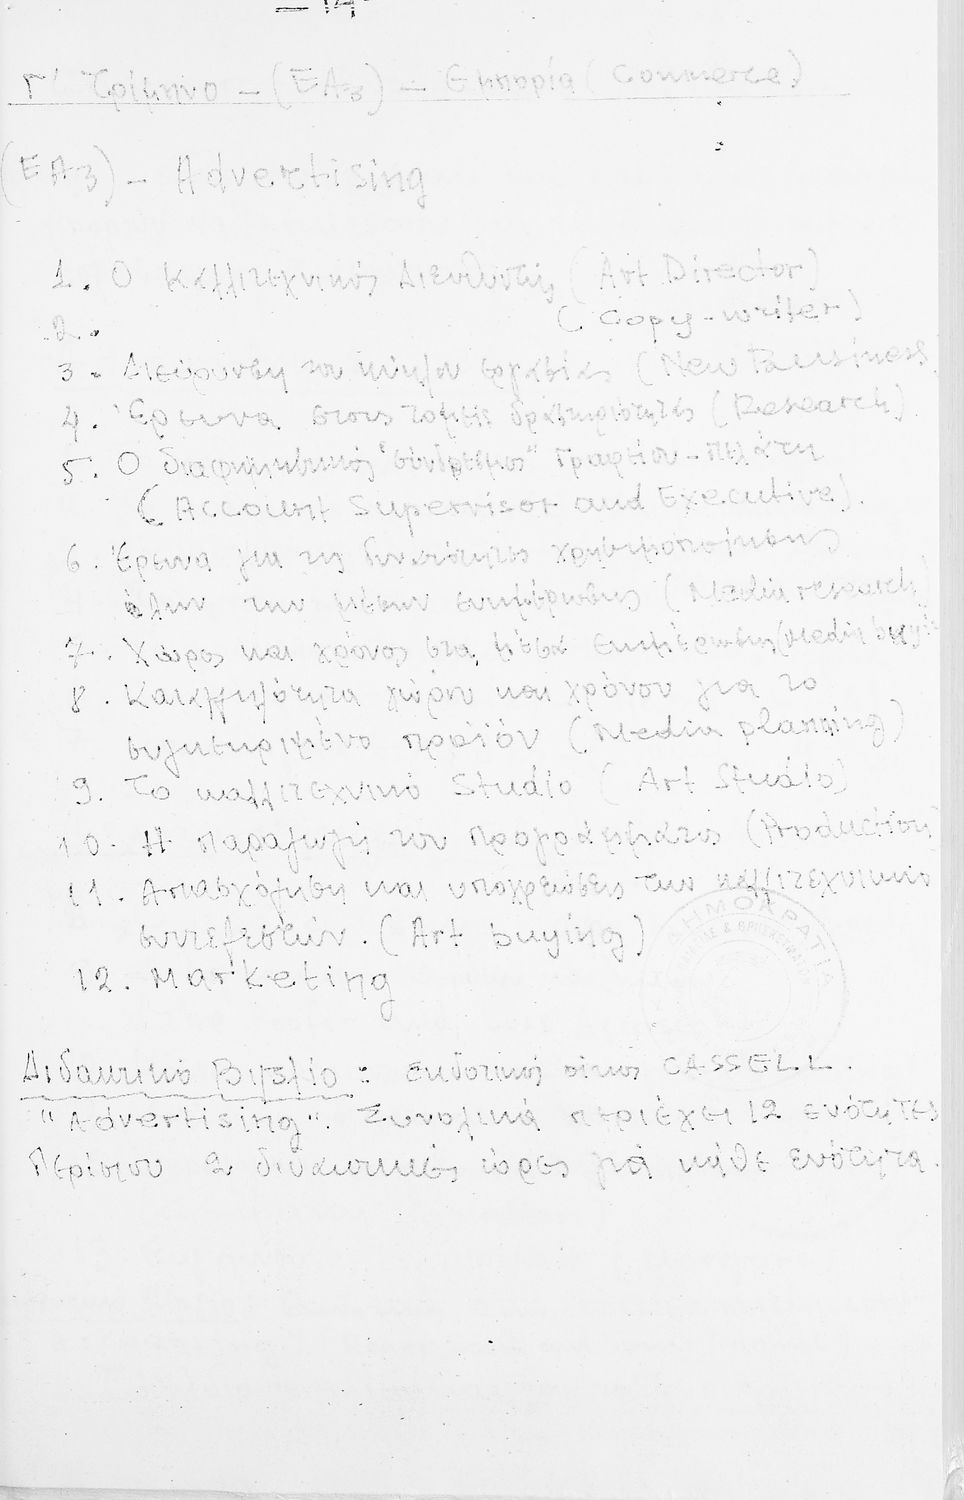 — 14
Γ' Τρίμηνο — (ΕΑ3) — Εμπορία (Commerce)
(ΕΑ3) — Advertising
1. Ο Καλλιτεχνικός Διευθυντής (Art Director)
2. (Copy-writer)
3. Διεύρυνση του κύκλου εργασίας (New Business)
4. Έρευνα στους τομείς δραστηριότητες (Research)
5. Ο διαφημιστικός "σύνδεσμος" Γραφείου - πελάτη
(Account Supervisor and Executive).
6. Έρευνα για τις δυνατότητες χρησιμοποίησης
όλων των μέσων ενημέρωσης (Media research)
7. Χώρος και χρόνος στα μέσα ενημέρωσης (Media buying
8. Καταλληλότητα χώρου και χρόνου για το
συγκεκριμένο προϊόν (Media planning)
9. Το καλλιτεχνικό Studio (Art Studio)
10. Η παραγωγή του προγράμματος (Production)
11. Απασχόληση και υποχρεώσεις των καλλιτεχνικών
συντελεστών. (Art buying)
12. Marketing
Διδακτικό Βιβλίο : εκδοτικός οίκος CASSELL.
"Advertising". Συνολικά περιέχει 12 ενότητες
Περίπου 2 διδακτικές ώρες για κάθε ενότητα.
ΔΗΜΟΚΡΑΤΙΑ